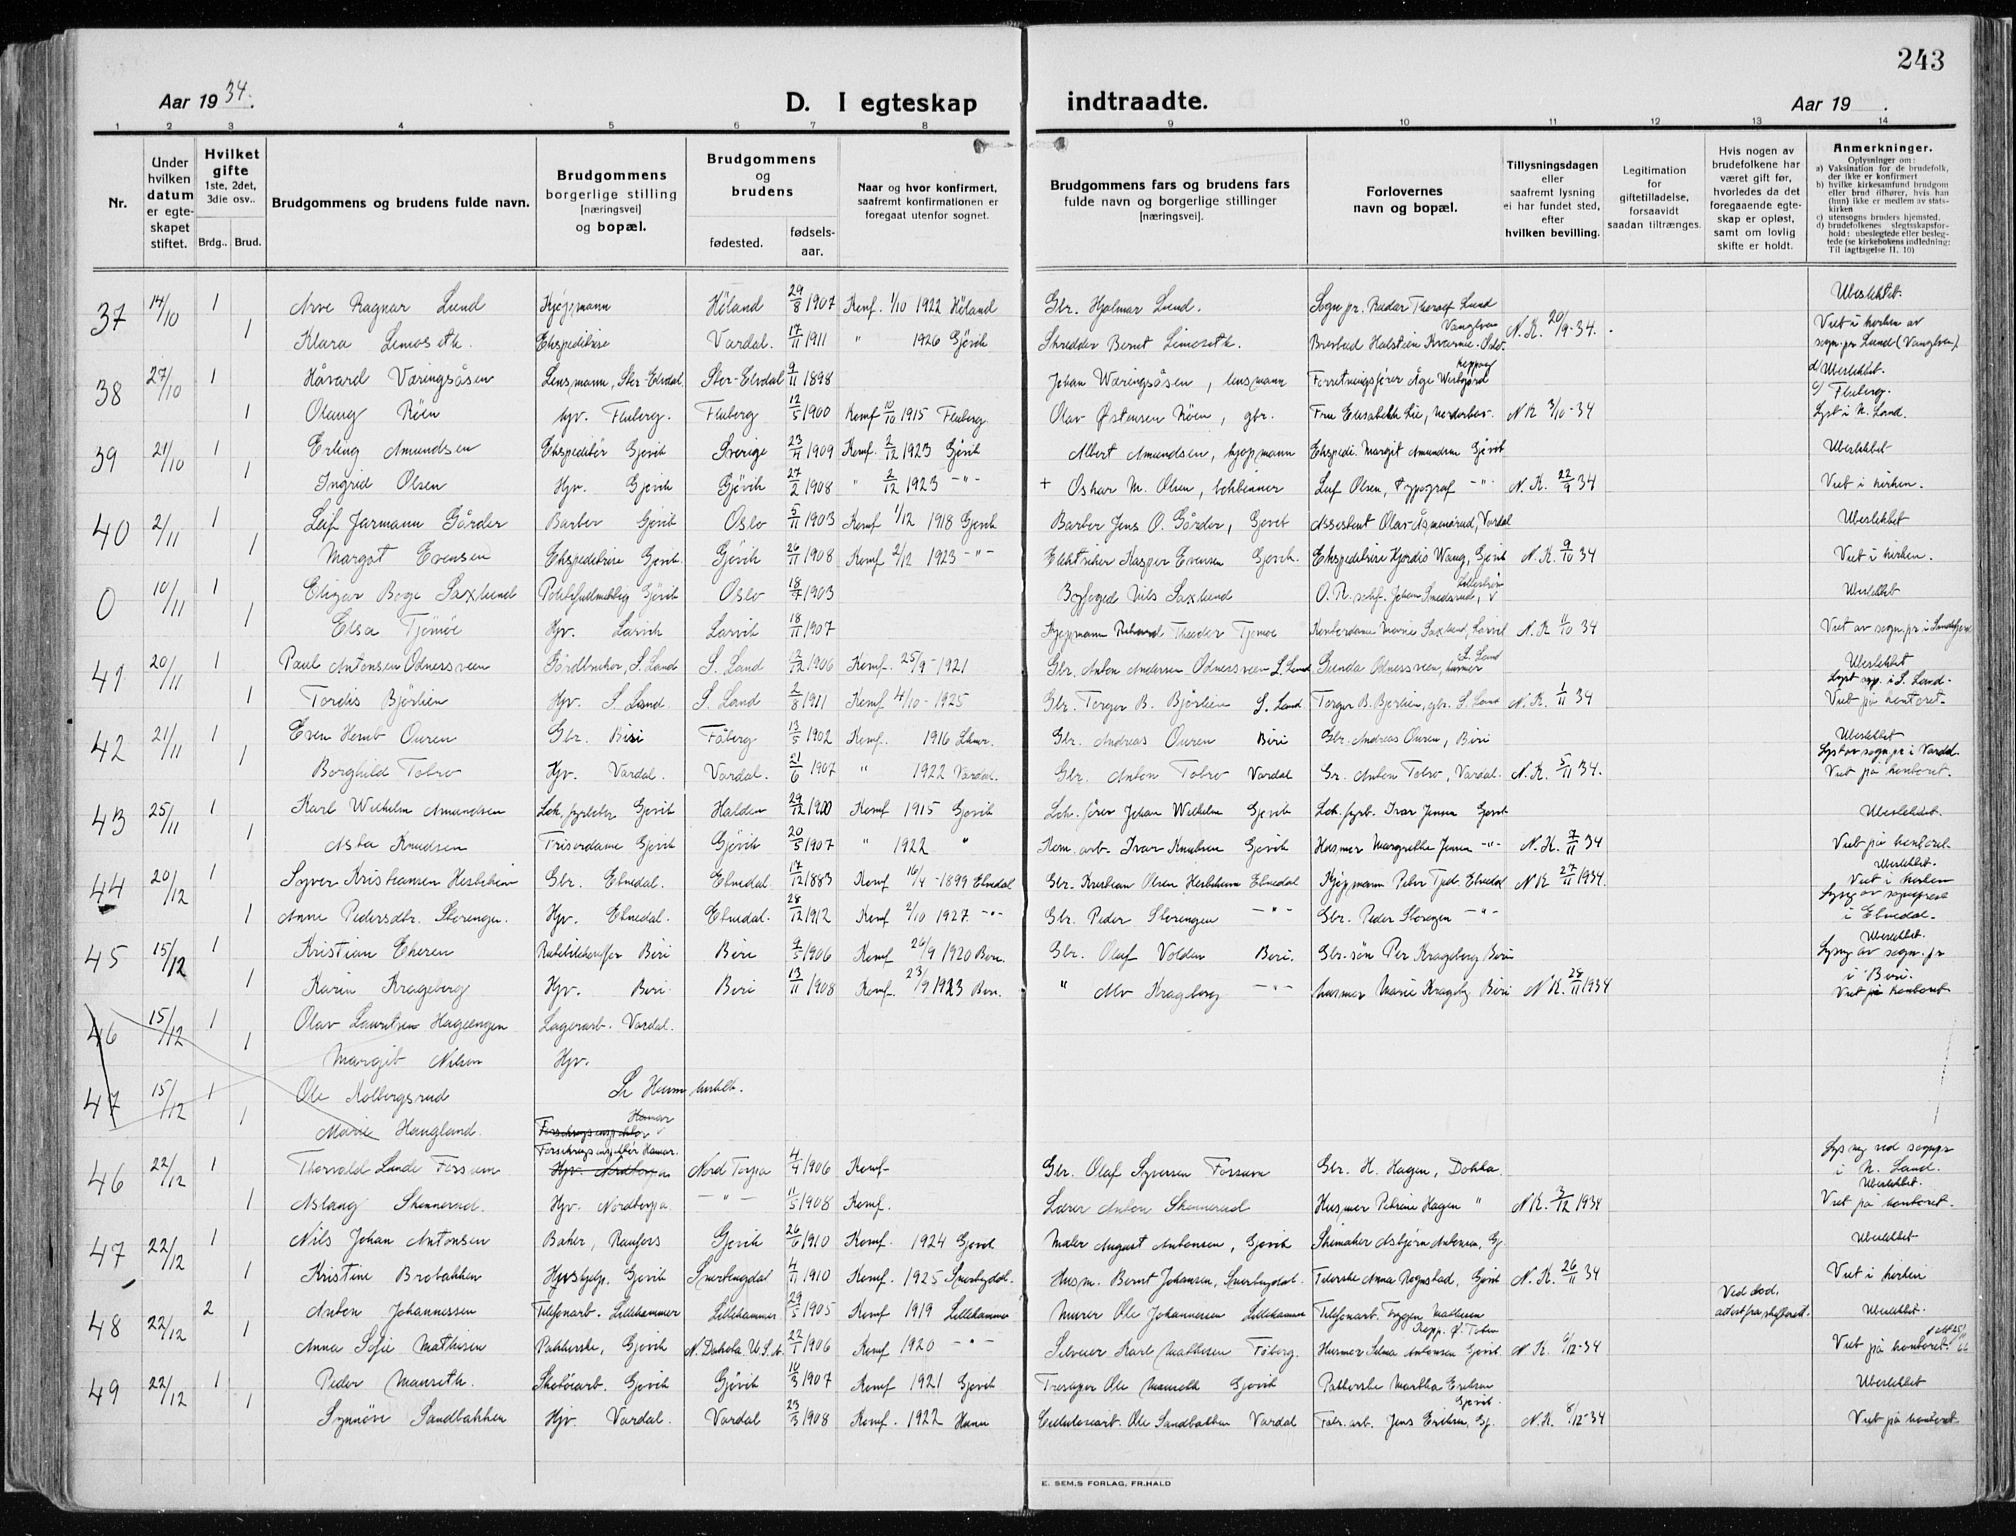 243
Aar 19 34.
D. I egteskap
indtraadte.
Aar 19 .
1 2 3 4 5 6 7 8 9 10 11 12 13 14
Nr.
Under hvilken datum er egte-skapet stiftet.
Hvilket gifte 1ste, 2det, 3die osv..
Brdg.. Brud.
Brudgommens og brudens fulde navn.
Brudgommens borgerlige stilling [næringsvei] og bopæl.
Brudgommens og brudens
fødested.
fødsels-aar.
Naar og hvor konfirmert, saafremt konfirmationen er foregaat utenfor sognet.
Brudgommens fars og brudens fars fulde navn og borgerlige stillinger [næringsvei].
Forlovernes navn og bopæl.
Tillysningsdagen eller saafremt lysning ei har fundet sted, efter hvilken bevilling.
Legitimation for giftetilladelse, forsaavidt saadan tiltrænges.
Hvis nogen av brudefolkene har været gift før, hvorledes da det foregaaende egte-skap er opløst, samt om lovlig skifte er holdt.
Anmerkninger.
Oplysninger om:
a) Vaksination for de brudefolk, der ikke er konfirmert
b) hvilke kirkesamfund brudgom eller brud tilhører, hvis han (hun) ikke er medlem av stats-kirken
c) utensogns bruders hjemsted.
d) brudefolkenes slegtsskapsfor-hold: ubeslegtede eller besleg-tede (se kirkebokens indledning: Til iagttagelse II. 10)
37 14/10 1 Arve Ragnar Lund Kjøpmann Høland 29/8 1907 Konf. 1/10 1922 Høland Gbr. Hjalmar Lund. Sogn pr. Lund Ubeslektet.
1 Klara Limoseth. Ekspeditrise Vardal. 17/11 1911 " 1926 Gjøvik Skredder Bernt Limoseth. N. K. 20/9-34. Viet i kirken av sogn.pr. Lund
38 27/10 1 Håvard Væringsåsen Lensmann, Stor-Elvdal Stor-Elvdal 9/11 1898 Johan Væringsåsen, lensmann Forretningsfører Åge d) Ubeslektet.
1 Olaug Röen hjv. Fluberg. Fluberg 12/5 1900 Konf 10/10 1915 Fluberg Olav Østensen Röen, gbr. Fru Elisabeth Lie, N K 3/10-34 c) Fluberg. Lyst i N. Land.
39 21/10 1 Erling Amundsen Ekspeditør Gjøvik Sverige 23/11 1909 Konf. 2/12 1923 Gjøvik Albert Amundsen, kjøpmann Ekspedi. Margit Amundsen Gjøvik Ubeslektet
1 Ingrid Olsen Hjv. Gjøvik Gjøvik 27/2 1908 " 2/12 1923 -"- + Oskar M. Olsen, Leif Olsen, typograf -"- N. K. 22/9 34 Viet i kirken.
40 2/11 1 Leif Jarmann Gårder Barber Gjøvik Oslo 5/11 1903 Konf 1/12 1918 Gjøvik Barber Jens O. Gårder, Gjøvik Assistent Olav Vardal Ubeslektet
1 Margot Evensen Ekspeditrise Gjøvik Gjøvik 26/11 1908 Konf 2/12 1923 -"- Elektriker Kasper Evensen Gjøvik. Ekspeditrise Hjördis Wang, Gjøvik N. K. 9/10 34 Viet i kirken.
0 10/11 1 Boge Saxlund Politifullmektig Gjøvik Oslo 18/7 1903 Byfoged Nils Saxlund O. R. Johan Ubeslektet
1 Elsa Tjömöe Hjv. Larvik Larvik 18/11 1907 Kjøpmann Theodor Tjömöe Kontordame Marie Saxlund, Larvik N. K 11/10 34 Viet av sogn.pr i Sandefjord
41 20/11 1 Paul Antonsen Odnessveen Gårdbruker, S. Land S. Land 1906 Konf. 25/9-1921 Gbr. Anton Andersen Odnessveen S. Land Gunda Odnessveen, husmor S. Land Ubeslektet
1 Tordis Björlien Hjv. S. Land. S. Land 2/8 1911 Konf 4/10-1925 Gbr. Torger B. Björlien S. Land Torger B. Bjørlien, gbr. S. Land N. K. 1/11 34 Lyst i S. Land- Viet på kontoret.
42 21/11 1 Even Hemb Ouren Gbr. Biri Fåberg 13/5 1902 Konf. 1916 Gbr. Andreas Ouren Biri Gbr. Andreas Ouren, Biri Ubeslektet
1 Borghild Tobro Hjv. Vardal. Vardal. 21/6 1907 " 1922 Vardal. Gbr. Anton Tobro Vardal Gr. Anton Tobro, Vardal. N. K. 5/11 34. Lyst av sogn.pr i Vardal Viet på kontoret.
43 25/11 1 Karl Wilhelm Amundsen Lok. fyrbøter Gjøvik Halden 29/12 1900 Konf 1915 Gjøvik Lok. fører Johan Wilhelm Gjøvik Lok. fyrb. Ivar Jensen Gjøvik Ubeslektet.
1 Asta Knudsen Frisørdame Gjøvik Gjøvik 20/5 1907 " 1922 " Kom. arb. Ivar Knudsen Gjøvik Husmor Margrethe Jensen -"- N. K. 7/11 34 Viet på kontoret.
44 20/12 1 Syver Kristiansen Gbr. Etnedal. Etnedal. 17/12 1883 Konf 16/4-1899 Etnedal Gbr. Kristian Olsen Etnedal Kjøpmann Peter Etnedal N K 27/11 1934 Ubeslektet. Viet i kirken
1 Anne Pedersdtr. Storengen. Hjv. Etnedal. Etnedal. 28/12 1912 Konf 2/10 1927. -"- Gbr. Peder Storengen -"- Gbr. Peder Storengen -"- Lysng av sogneprest i Etnedal.
45 15/12 1 Kristian Ekeren Biri Biri 9/5 1906 Konf 26/9 1920 Biri. Gbr. Olaf Volden Biri. Gbr. sön Per Krageberg Biri Ubeslektet. Lysng av sogn.pr i Biri.
1 Karin Krageberg Hjv. Biri Biri 13/11 1908 Konf. 23/9 1923 Biri. " Alv Krageberg -"- husmor Marie Krageb. Biri N K. 28/11 1934 Viet på kontoret
46 15/12 1 Olav Lauritsen Hageengen Lagerarb. Vardal.
1 Margit Nilsen Hjv.
47 15/12 1 Ole Kolbergsrud
1 Marie Haugland. Forsikringsinspektør Hamar
46 22/12 1 Thorvald Linde Forsum Forsikringsinspektør Hamar. Hjv. Nordtorpa Nord Torpa 4/4 1906 Konf- Gbr. Olaf Syversen Forsum Gbr. H. Hagen, Dokka Lysng ved sognpr i N. Land. Ubeslektet.
1 Aslaug Skinnerud. Hjv. Nordtorpa. -"- 11/5 1908 Konf. Lærer Anton Skinnerud Husmor Petrine Hagen " N K. 3/12 1934 Viet på kontoret.
47 22/12 1 Nils Johan Antonsen Baker, Raufoss Gjøvik 26/6 1910 Konf. 1924 Gjøvik Maler August Antonsen, Gjøvik Skomaker Asbjørn Antonsen, Gj. Ubeslektet
1 Kristine Brobakken Hushjelp. Gjøvik Snertingdal 4/11 1910 Konf. 1925 Snertingdal. Husm. Bernt Johansen, Snertingdal. Anna Rognstad, Gjøvik N. K. 26/11 34 Viet i kirken
48 22/12 2 Anton Johannessen Telefonarb. Lillehammer Lillehammer 29/5 1905 Konf 1919 Lillehammer Murer Ole Johannesen Lillehammer Telefonarb. Trygve Mathisen Ved død, attest fra skifterett. Ubeslektet.
1 Anna Sofie Mathisen Pakkerske, Gjøvik N. Dakota. U. S. A. 22/1 1906 Konf 1920 -"- Karl Mathisen Fåberg. Husmor Selma Antonsen Gjøvik N K. 6/12-34 Viet på kontoret.
49 22/12 1 Peder Mauseth. Skotöiarb. Gjøvik Gjøvik 10/3 1907 Konf 1921 Gjøvik Ole Mauseth Gjøvik Pakkerske Martha Eriksen Gjøvik. Ubeslektet
1 Synnöve Sandbakken Hjv Vardal. Vardal 23/3 1908 Konf. 1922 Hunn Cellulosearb. Ole Sandbakken Vardal Fabr. arb. Jens Eriksen, Gj. N. K. 8/12-34 Viet på kontoret.
E. SEM,S FORLAG, FR.HALD